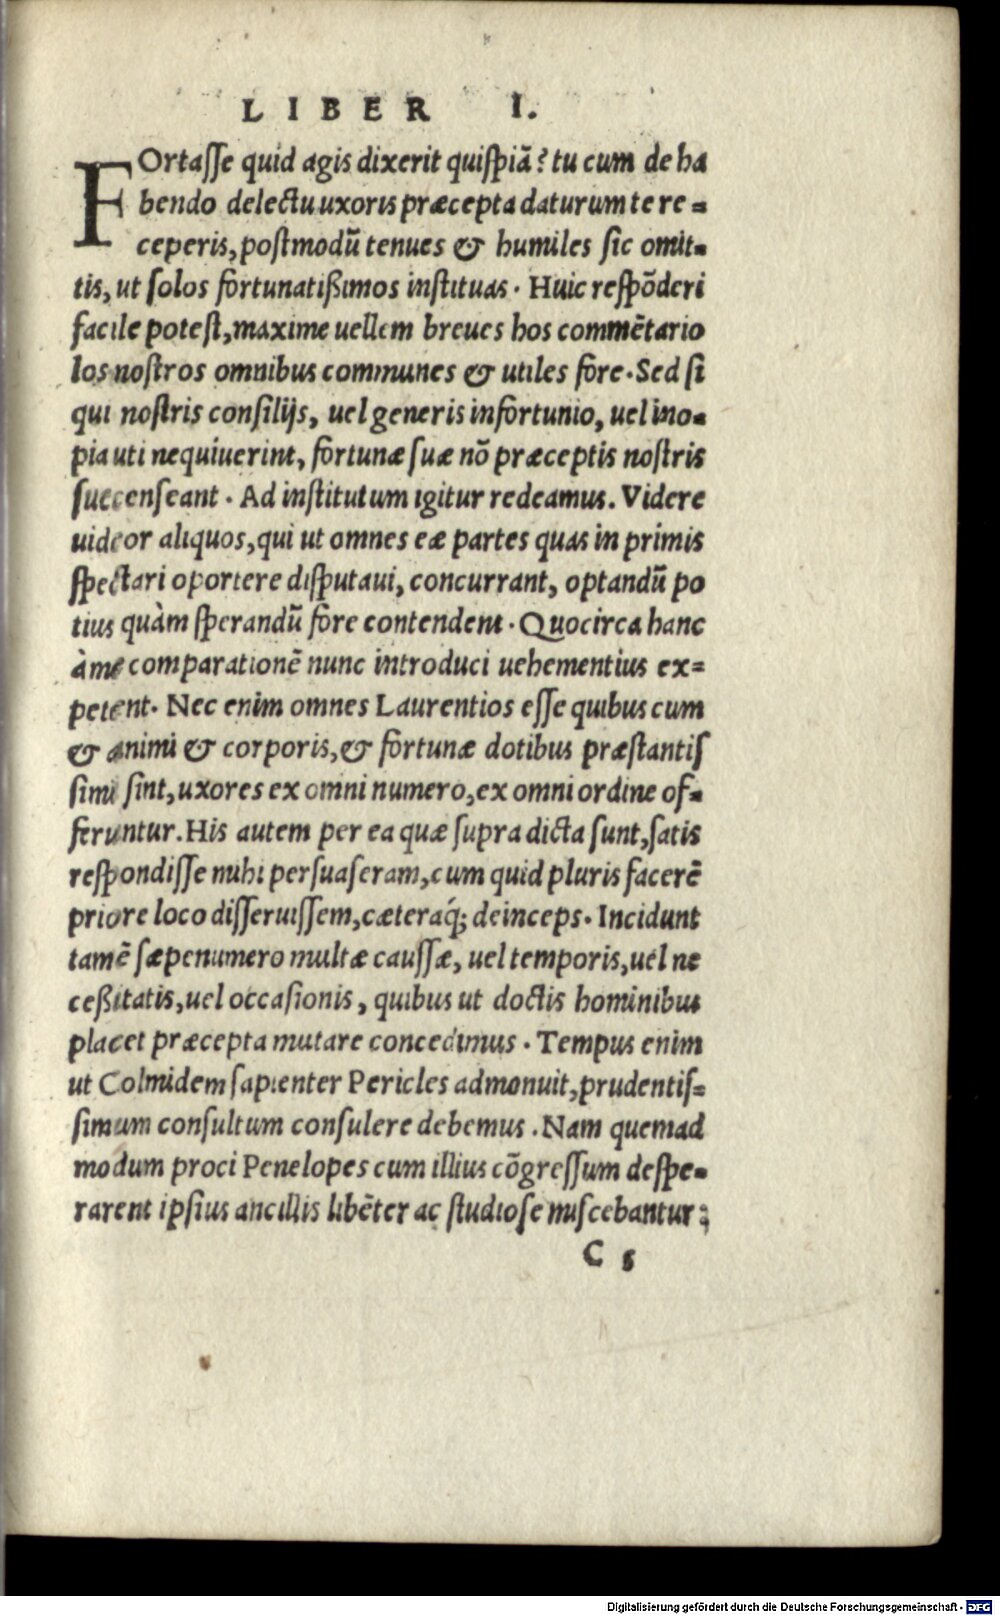 LIBER I.
FOrtaſſe quid agis dixerit quiſpiã? tu cum de ha
bendo delectu uxoris præcepta daturum te re=
ceperis, poſtmodũ tenues & humiles ſic omit=
tis, ut ſolos fortunatißimos inſtituas. Huic reſpõderi
facile poteſt, maxime uellem breues hos commẽtario
los noſtros omnibus communes & utiles fore. Sed ſi
qui noſtris conſilijs, uel generis infortunio, uel ino=
pia uti nequiuerint, fortunæ ſuæ nõ præceptis noſtris
ſuccenſeant. Ad inſtitutum igitur redeamus. Videre
uideor aliquos, qui ut omnes eæ partes quas in primis
ſpectari oportere diſputaui, concurrant, optandũ po
tius quàm ſperandũ fore contendent. Quocirca hanc
à me comparationẽ nunc introduci uehementius ex=
petent. Nec enim omnes Laurentios eſſe quibus cum
& animi & corporis, & fortunæ dotibus præſtantiſ
ſimi ſint, uxores ex omni numero, ex omni ordine of=
feruntur. His autem per ea quæ ſupra dicta ſunt, ſatis
reſpondiſſe mihi perſuaſeram, cum quid pluris facerẽ
priore loco diſſeruiſſem, cæteraq́; deinceps. Incidunt
tamẽ ſæpenumero multæ cauſſæ, uel temporis, uel ne
ceßitatis, uel occaſionis, quibus ut doctis hominibus
placet præcepta mutare concedimus. Tempus enim
ut Colmidem ſapienter Pericles admonuit, prudentiſ=
ſimum conſultum conſulere debemus. Nam quemad
modum proci Penelopes cum illius cõgreſſum deſpe=
rarent ipſius ancillis libẽter ac ſtudioſe miſcebantur;
C 5
Digitalisierung gefördert durch die Deutsche Forschungsgemeinschaft - DFG